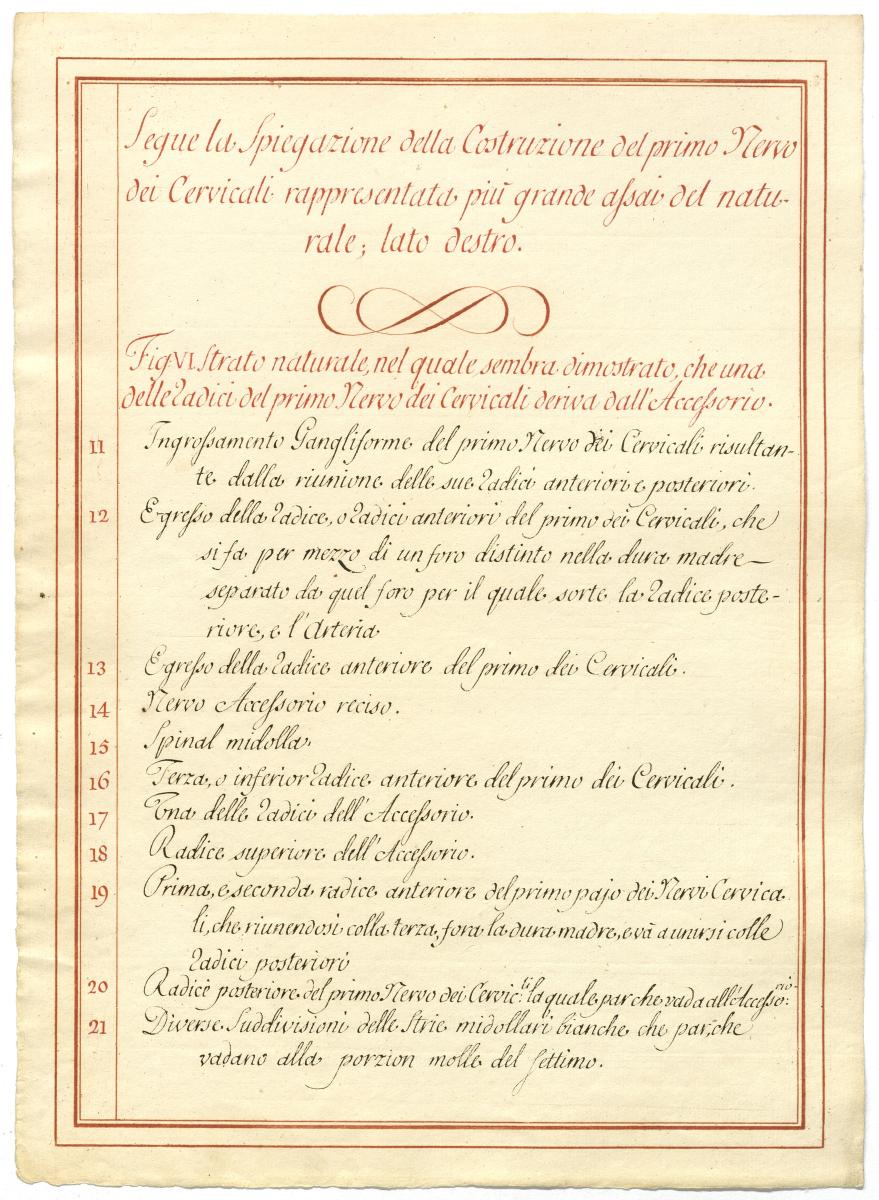 Segue la Spiegazione della Costruzione del primo Nervo
dei Cervicali rappresentata più grande assai del natu-
rale; lato destro.
Fig. VI. Strato naturale, nel quale sembra dimostrato, che una
delle Radici del primo Nervo dei Cervicali deriva dall'Accessorio.
11 Ingrossamento Gangliforme del primo Nervo dei Cervicali risultan-
te dalla riunione delle sue Radici anteriori e posteriori.
12 Egresso della Radice, o Radici anteriori del primo dei Cervicali, che
si fa per mezzo di un foro distinto nella dura madre
separato da quel foro per il quale sorte la Radice poste-
riore, e l'Arteria
13 Egresso della Radice anteriore del primo dei Cervicali.
14 Nervo Accessorio reciso.
15 Spinal midolla.
16 Terza, o inferior Radice anteriore del primo dei Cervicali.
17 Una delle Radici dell'Accessorio.
18 Radice superiore dell'Accessorio.
19 Prima, e seconda radice anteriore del primo pajo dei Nervi Cervica
li, che riunendosi colla terza, fora la dura madre, e và a unirsi colle
Radici posteriori
20 Radice posteriore del primo Nervo dei Cervic:li la quale par che vada all'Accesso:rio
21 Diverse Suddivisioni delle Strie midollari bianche che par, che
vadano alla porzion molle del settimo.